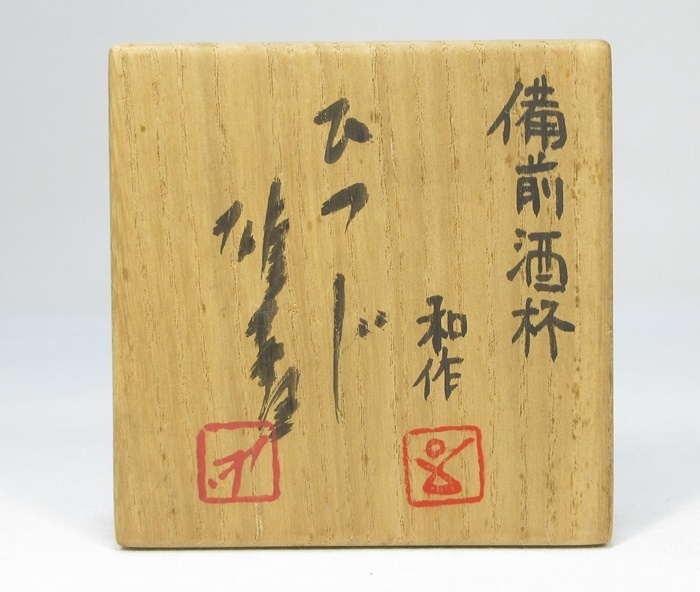 備前酒杯
和作
ひつじ